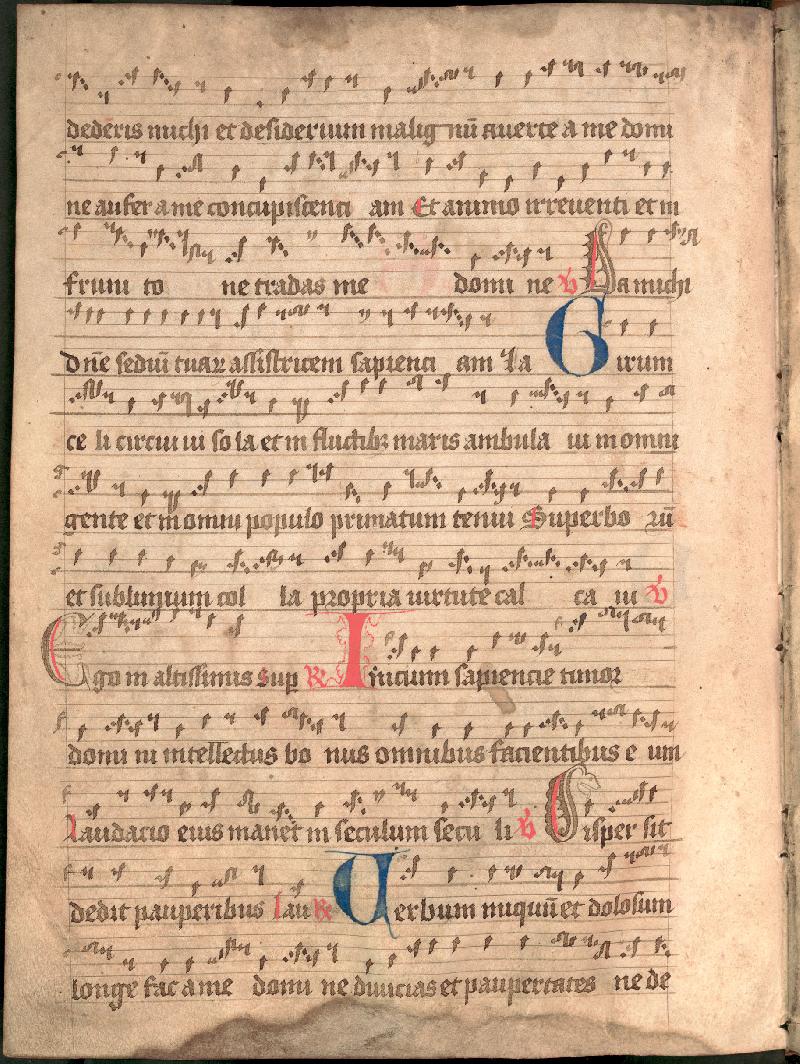 dederis michi et desiderium malig nū auerte a me domi
ne aufer a me concupiscenti am Et animo irreuerenti et in
fruni to ne tradas me domi ne ℣ Da michi
dn̄e sediū tuaꝝ assistricem sapienci am Ia Girum
ce li circui ui so la et in fluctibꝫ maris ambula ui in omni
gente et in omni populo primatum tenui Superbo ꝝū
et sublimium col la propria uirtute cal ca ui ℣
Ego in altissimis Sup ℟ Inicium sapiencie timor
domi ni intellectus bo nus omnibus facientibus e um
Laudacio eius manet in seculum secu li ℣ Disper sit
dedit pauperibus Lau ℟ Verbum iniquū et dolosum
longe fac a me domi ne diuicias et paupertates ne de